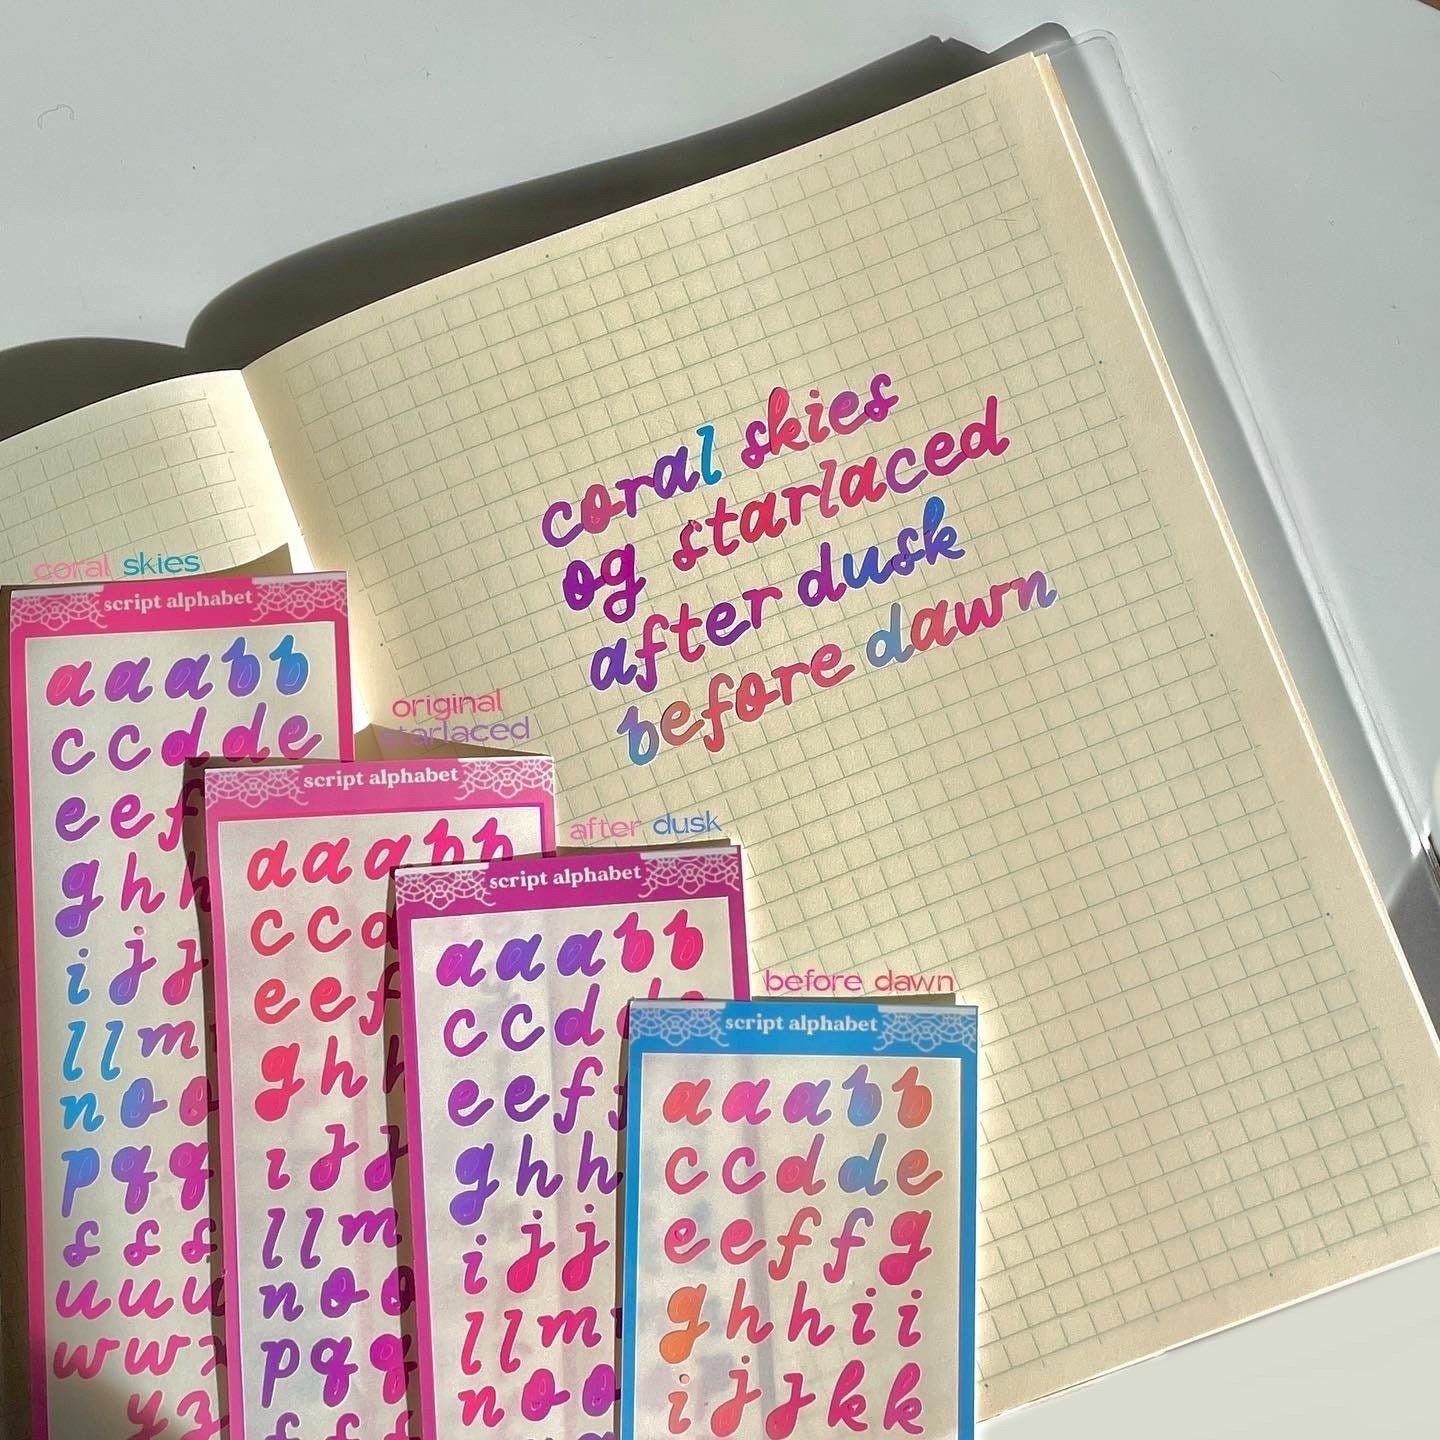 coral skies
og starlaced
after dusk
before dawn
coral skies
script alphabet
a a a b b
c c d d e
e e f
g h h
i j j
l l m
n o o
p q q
s s s
u u u
w w x
y z
original
starlaced
script alphabet
a a a b b
c c d
e e f
g h h
i j j
l l m
n o o
p q q
after dusk
script alphabet
a a a b b
c c d e
e e f f
g h h
i j j
l l m
n o o
before dawn
script alphabet
a a a b b
c c d d e
e e f f g
g h h i i
i j j k k